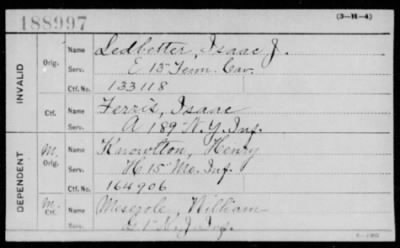 188997
(3-H-4)
INVALID
Orig. Name Ledbetter, Isaac J.
Serv. E 13 Tenn. Cav.
Ctf. No. 133118
Ctf. Name Ferris, Isaac
Serv. A 189 N.Y. Inf.
DEPENDENT
M. Orig. Name Knowlton, Henry
Serv. H 15 Me. Inf.
Ctf. No. 164906
M. Ctf. Name Meserole, William
Serv. 1 N.J. Inf.